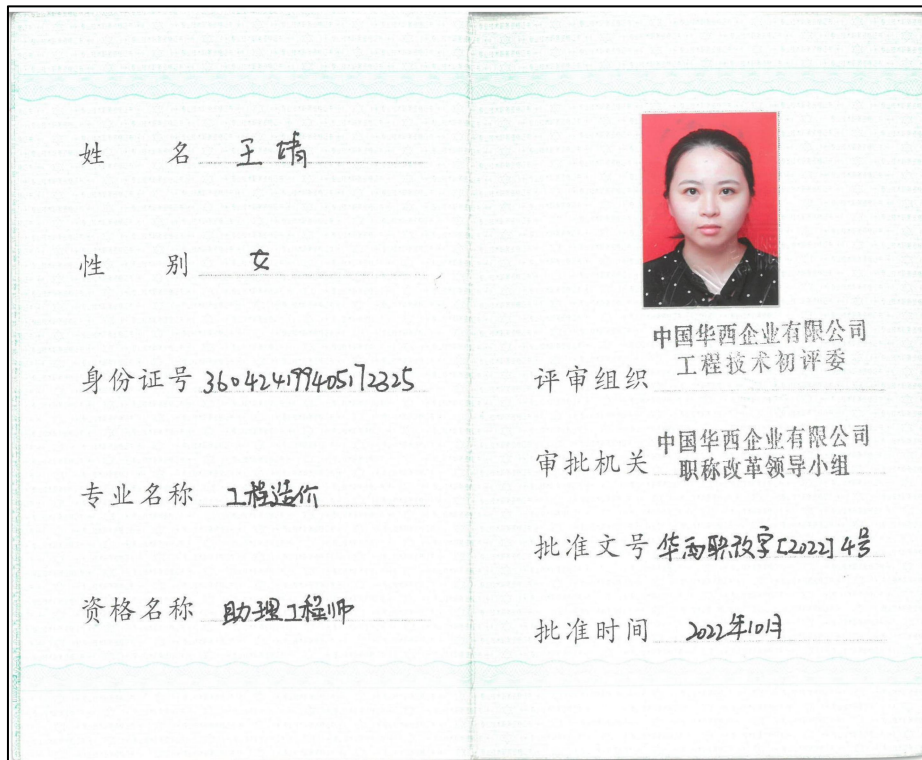 姓 名 王靖
性 别 女
身份证号 360424199405172325
专业名称 工程造价
资格名称 助理工程师
中国华西企业有限公司
评审组织 工程技术初评委
中国华西企业有限公司
审批机关 职称改革领导小组
批准文号 华西职改字[2022]4号
批准时间 2022年10月